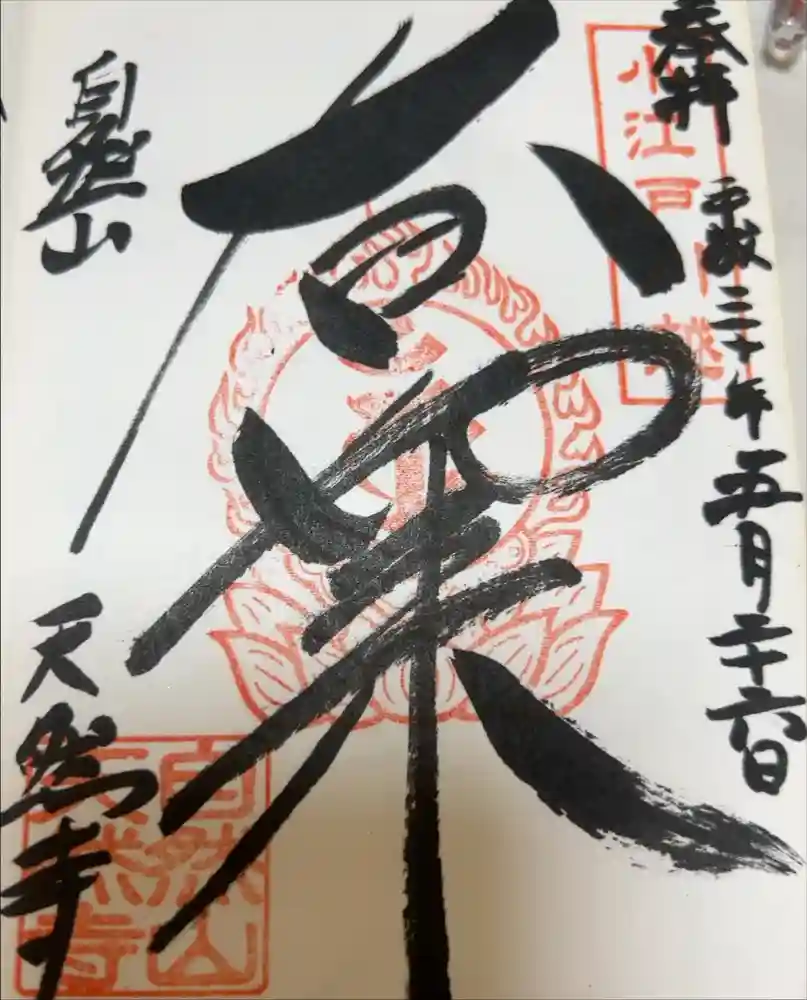 奉拝
平成三十年五月二十六日
小江戸川越
自然山
天然寺
自然山
天然寺